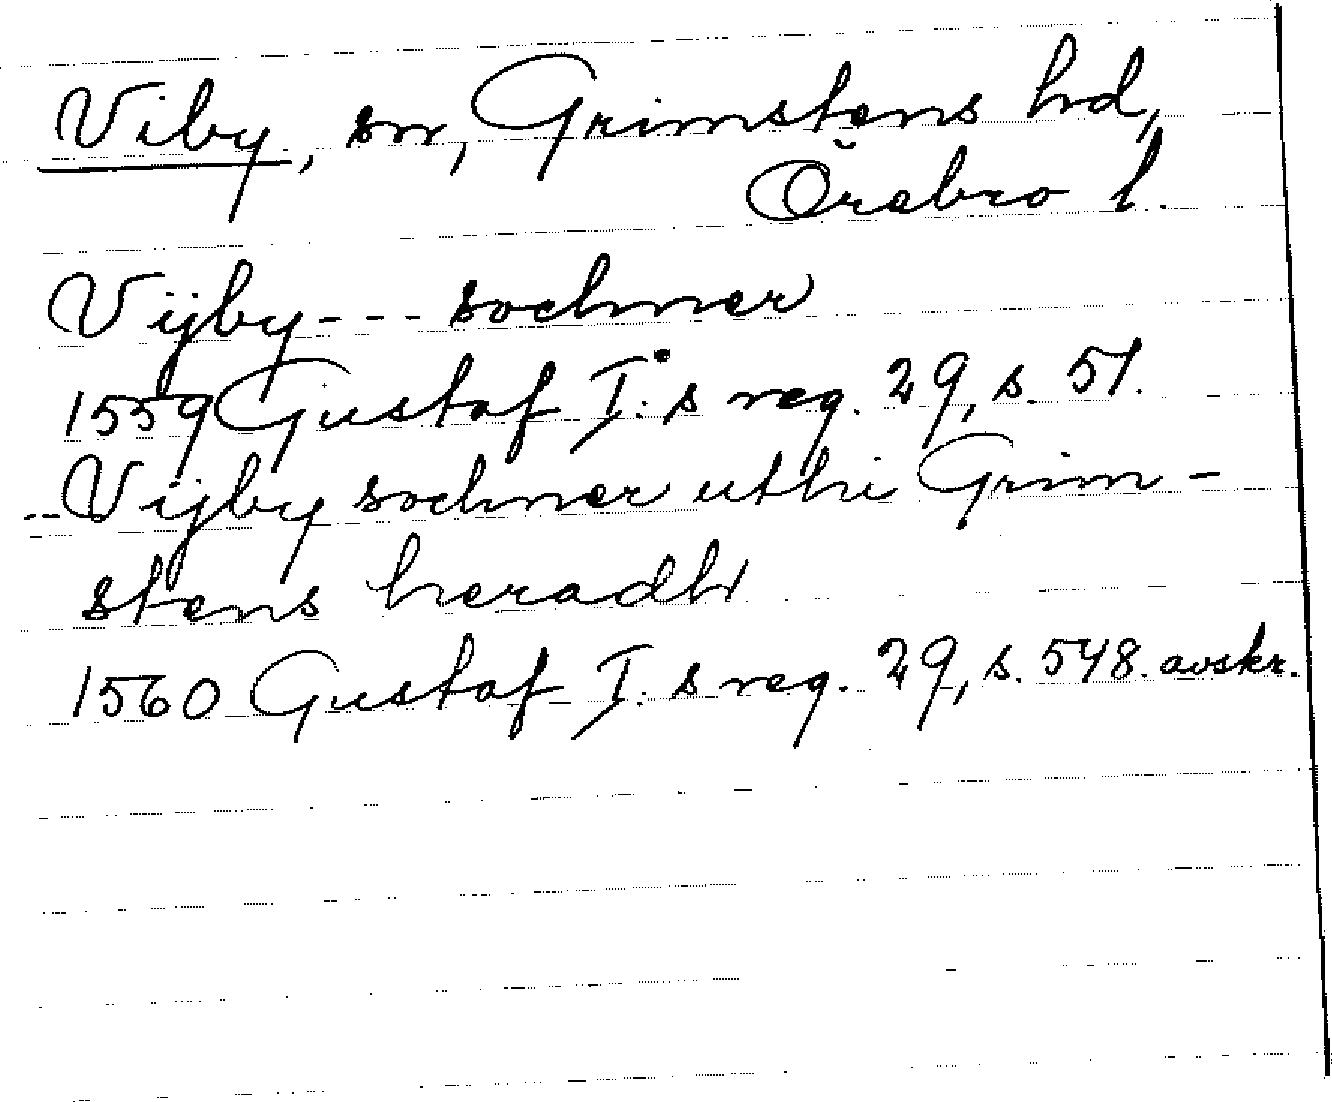 Viby, sn, Grimstens hd,
Örebro l.
Vijby--- sochner
1559 Gustaf I:s reg. 29, s. 51.
--Vijby sochner uthi Grim-
stens heradh
1560 Gustaf I. s reg. 29, s. 548. avskr.